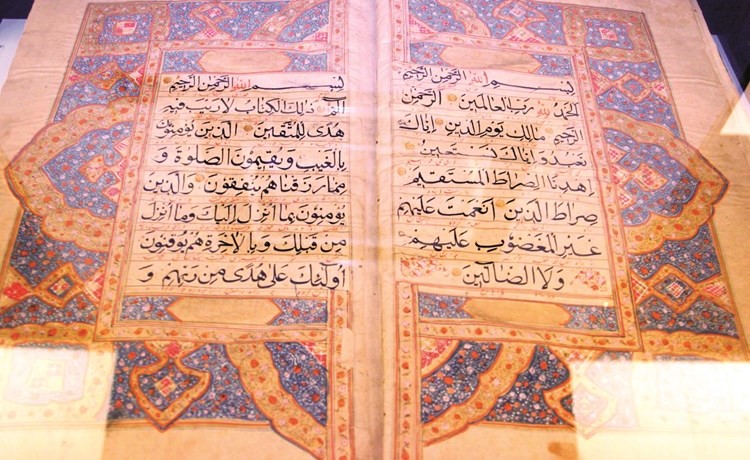 بسم الله الرحمن الرحيم
الحمد لله رب العالمين الرحمن
الرحيم مالك يوم الدين اياك
نعبد و اياك نستعين
اهدنا الصراط المستقيم
صراط الذين انعمت عليهم
غير المغضوب عليهم
ولا الضالين
بسم الله الرحمن الرحيم
الم ذلك الكتاب لا ريب فيه
هدى للمتقين الذين يؤمنون
بالغيب و يقيمون الصلوة و
مما رزقناهم ينفقون والذين
يؤمنون بما أنزل إليك وما أنزل
من قبلك وبالاخرة هم يوقنون
أولئك على هدى من ربهم و